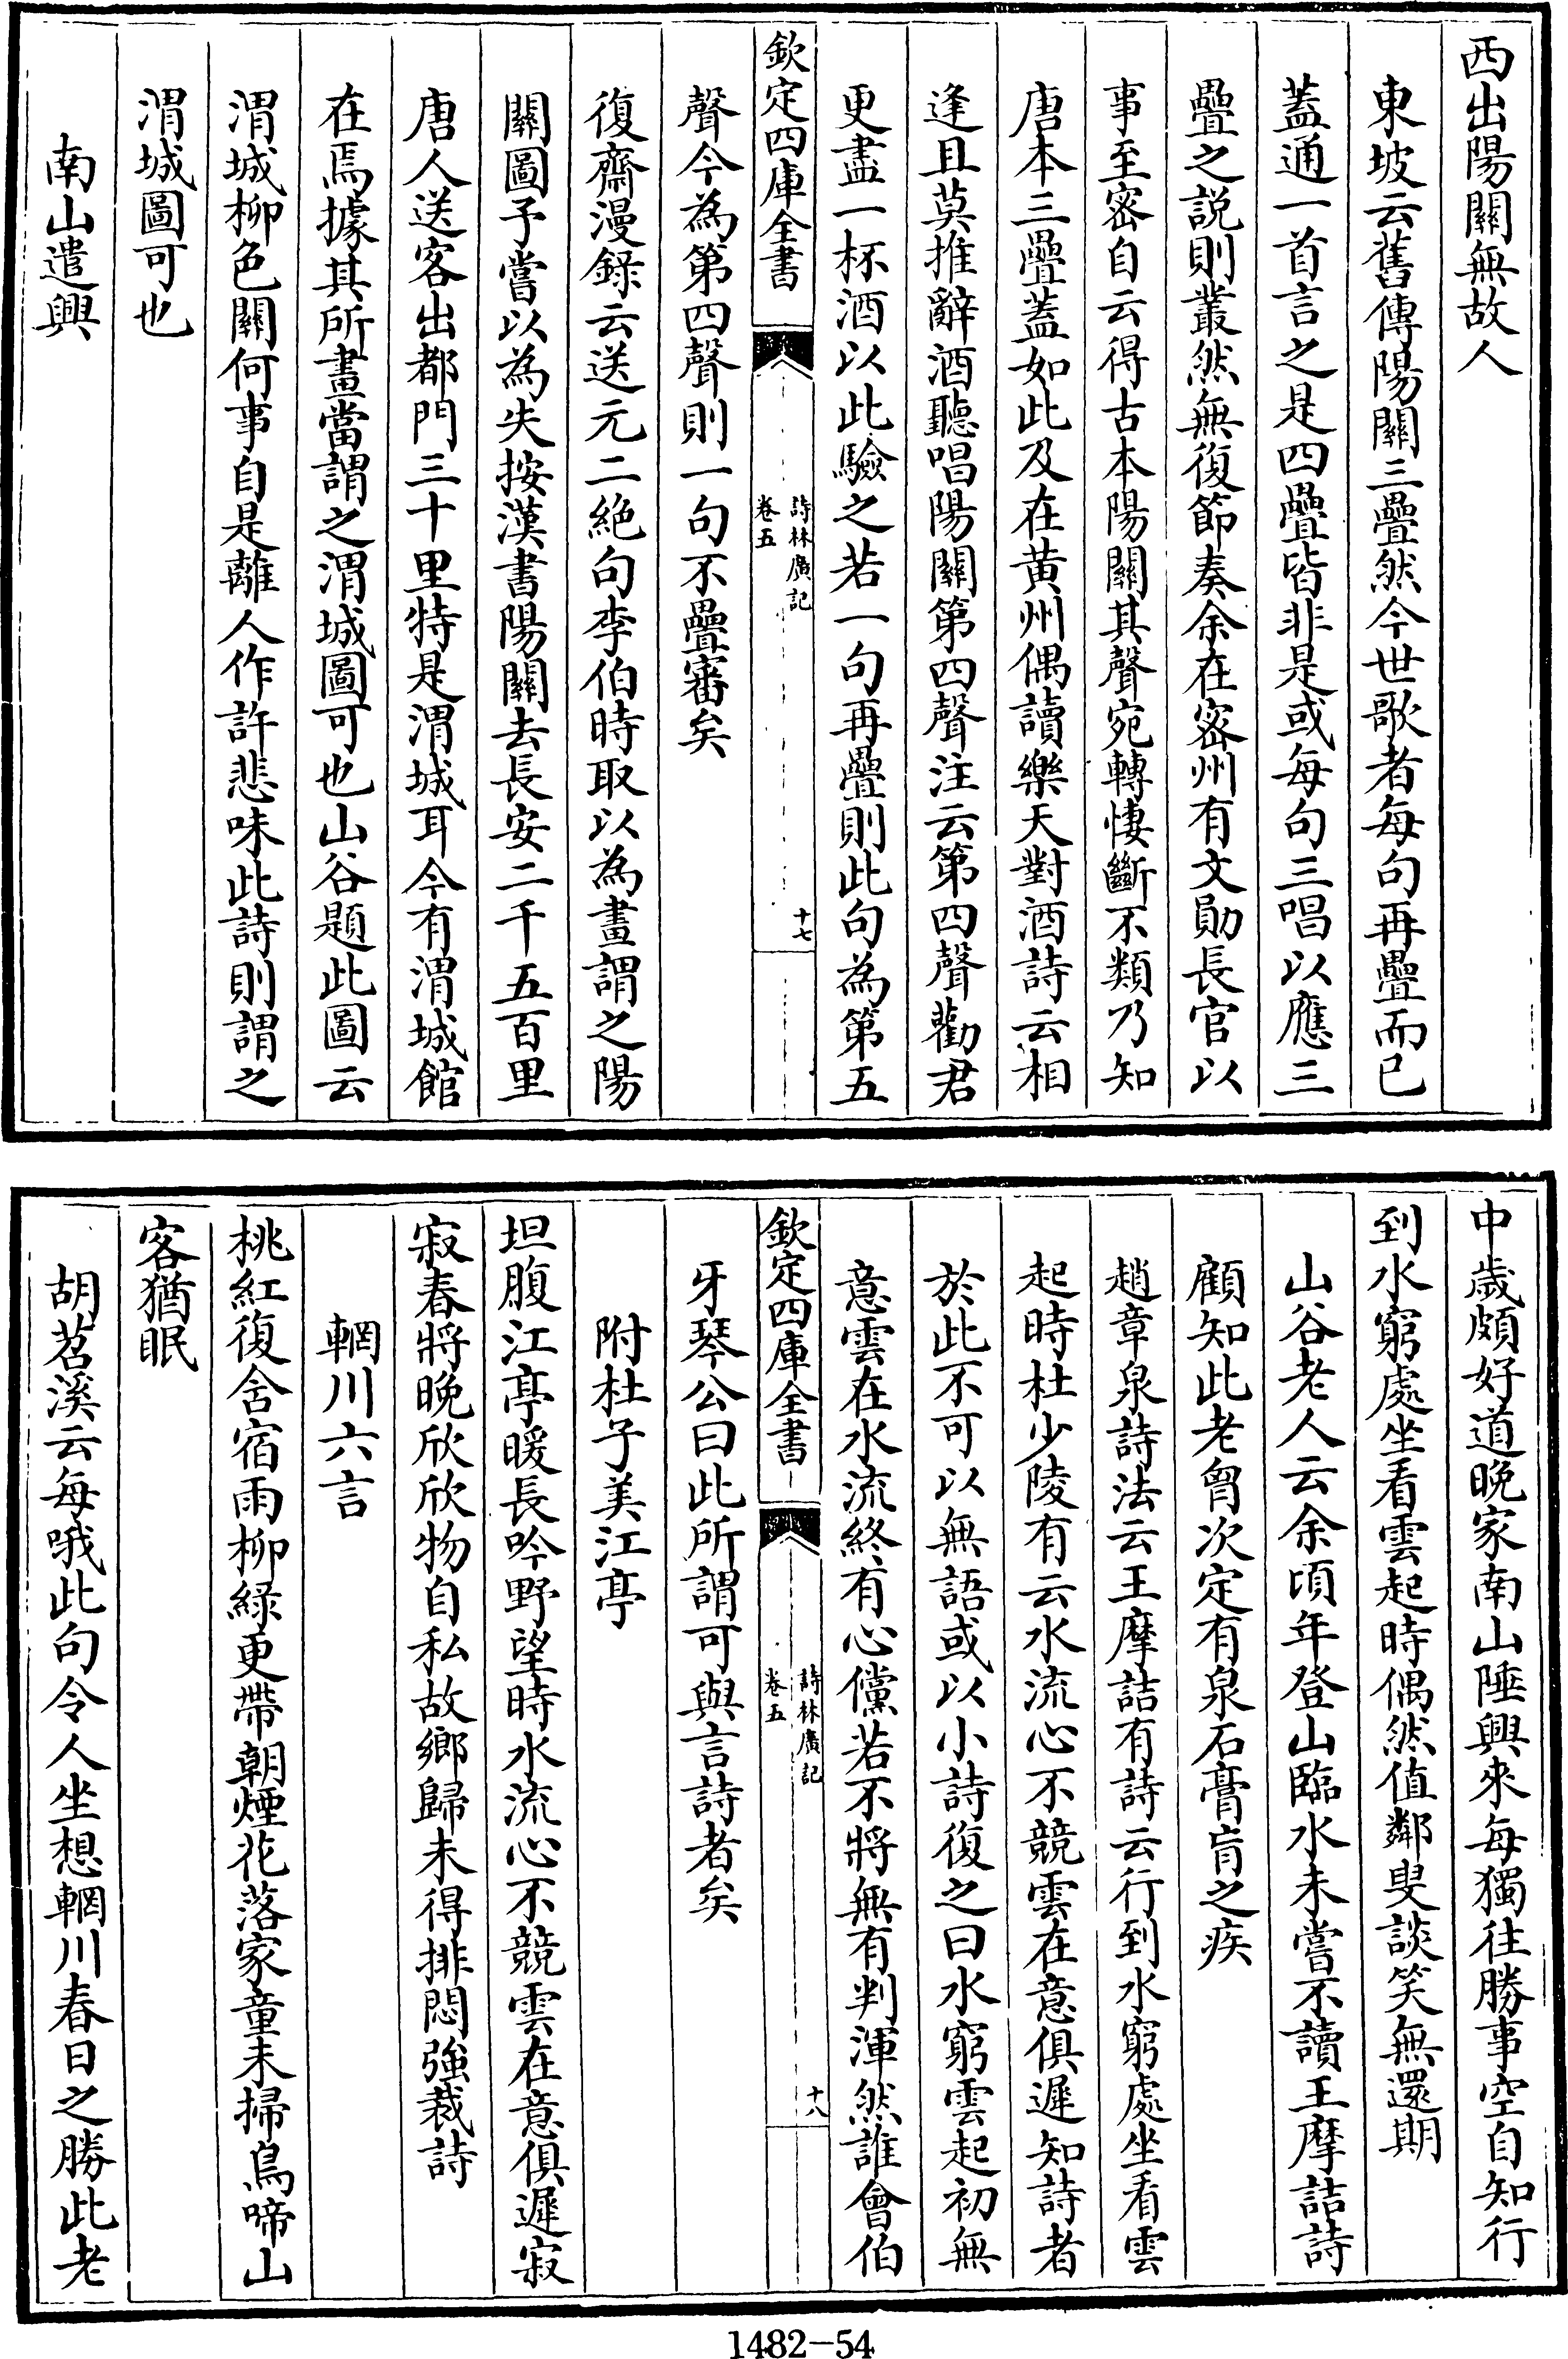 西出陽關無故人
東坡云舊傳陽關三疊然今世歌者每句再疊而已
蓋通一首言之是四疊皆非是或每句三唱以應三
疊之説則叢然無復節奏余在密州有文勛長官以
事至密自云得古本陽關其聲宛轉悽斷不類乃知
唐本三疊蓋如此及在黄州偶讀樂天對酒詩云相
逢且莫推辭酒聽唱陽關第四聲注云第四聲勸君
更盡一杯酒以此驗之若一句再疊則此句為第五
欽定四庫全書
詩林廣記
卷五
十七
聲今為第四聲則一句不疊審矣
復齋漫錄云送元二絶句李伯時取以為畫謂之陽
關圖予嘗以為失按漢書陽關去長安二千五百里
唐人送客出都門三十里特是渭城耳今有渭城館
在焉據其所畫當謂之渭城圖可也山谷題此圖云
渭城柳色關何事自是離人作許悲味此詩則謂之
渭城圖可也
南山遣興
中歲頗好道晚家南山陲興來每獨往勝事空自知行
到水窮處坐看雲起時偶然值鄰叟談笑無還期
山谷老人云余頃年登山臨水未嘗不讀王摩詰詩
顧知此老胷次定有泉石膏肓之疾
趙章泉詩法云王摩詰有詩云行到水窮處坐看雲
起時杜少陵有云水流心不競雲在意俱遲知詩者
於此不可以無語或以小詩復之曰水窮雲起初無
意雲在水流終有心儻若不將無有判渾然誰會伯
欽定四庫全書
詩林廣記
卷五
十八
牙琴公曰此所謂可與言詩者矣
附杜子美江亭
坦腹江亭暖長吟野望時水流心不競雲在意俱遲寂
寂春將晚欣欣物自私故鄉歸未得排悶強裁詩
輞川六言
桃紅復含宿雨柳綠更帶朝煙花落家童未掃鳥啼山
客猶眠
胡苕溪云每哦此句令人坐想輞川春日之勝此老
1482-54